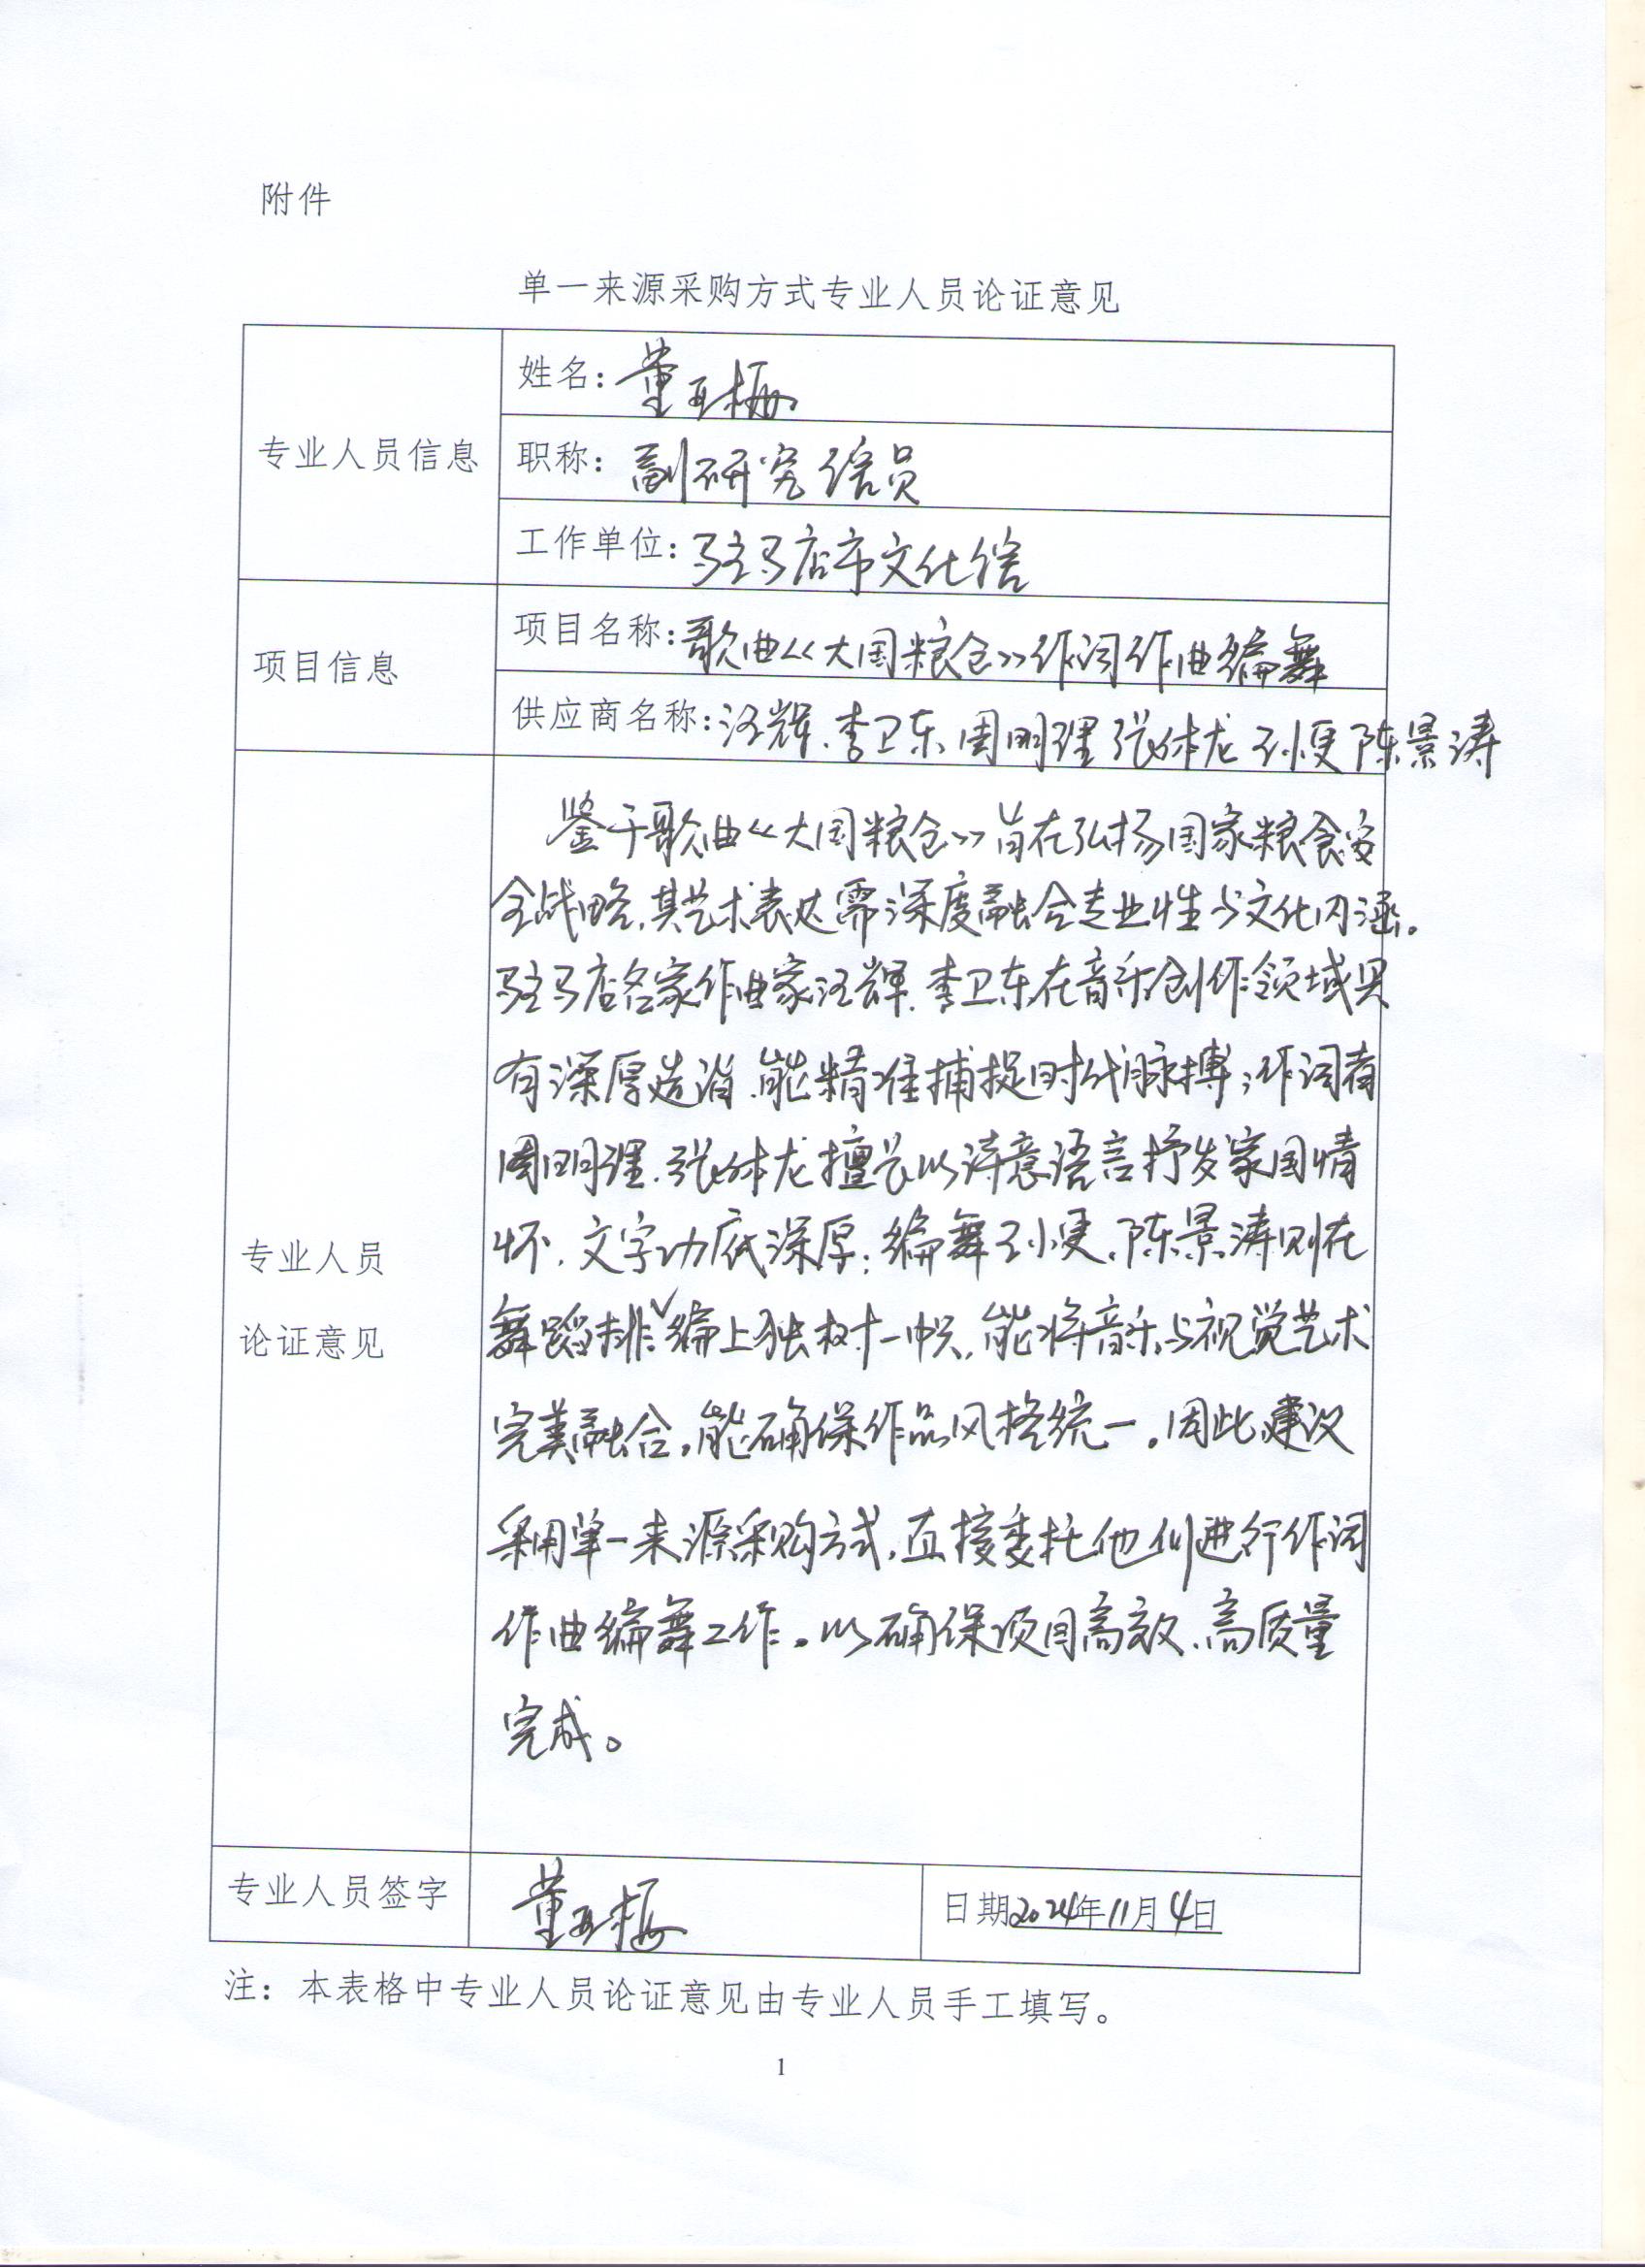 附件
单一来源采购方式专业人员论证意见
专业人员信息
姓名：董亚梅
职称：副研究馆员
工作单位：驻马店市文化馆
项目信息
项目名称：歌曲《大国粮仓》作词作曲编舞
供应商名称：汪辉、李卫东、周明理 张体龙 王小更 陈景涛
专业人员
论证意见
鉴于歌曲《大国粮仓》旨在弘扬国家粮食安
全战略，其艺术表达需深度融合专业性与文化内涵。
驻马店名家作曲家汪辉、李卫东在音乐创作领域具
有深厚造诣、能精准捕捉时代脉搏；作词者
周明理、张体龙擅长以诗意语言抒发家国情
怀，文字功底深厚；编舞王小更、陈景涛则在
舞蹈排编上独树一帜，能将音乐与视觉艺术
完美融合，能确保作品风格统一。因此，建议
采用单一来源采购方式，直接委托他们进行作词
作曲编舞工作。以确保项目高效、高质量
完成。
专业人员签字
董亚梅
日期2024年11月4日
注：本表格中专业人员论证意见由专业人员手工填写。
1